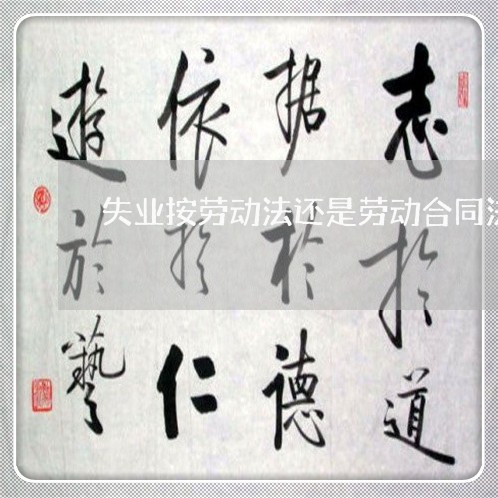 志於道
据於德
依於仁
遊於藝
失业按劳动法还是劳动合同